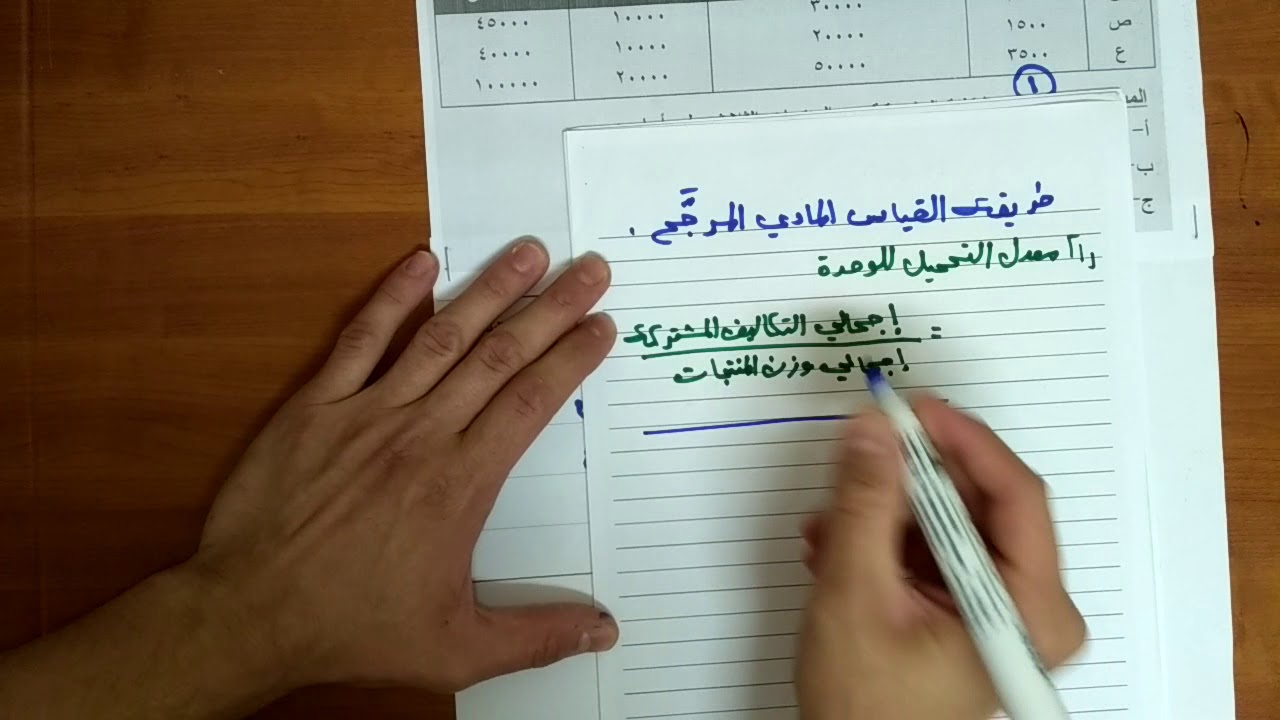 ٣٠٠٠٠ ١٠٠٠٠ ٤٥٠٠٠
ص ١٥٠٠ ٢٠٠٠٠ ١٠٠٠٠ ٤٠٠٠٠
ع ٣٥٠٠ ٥٠٠٠٠ ٢٠٠٠٠ ١٠٠٠٠٠
١
أ-
ب-
ج-
طريقة القياس المادي المرجَّح .
١) معدل التحميل للوحدة
= إجمالي التكاليف المشتركة
إجمالي وزن المنتجات